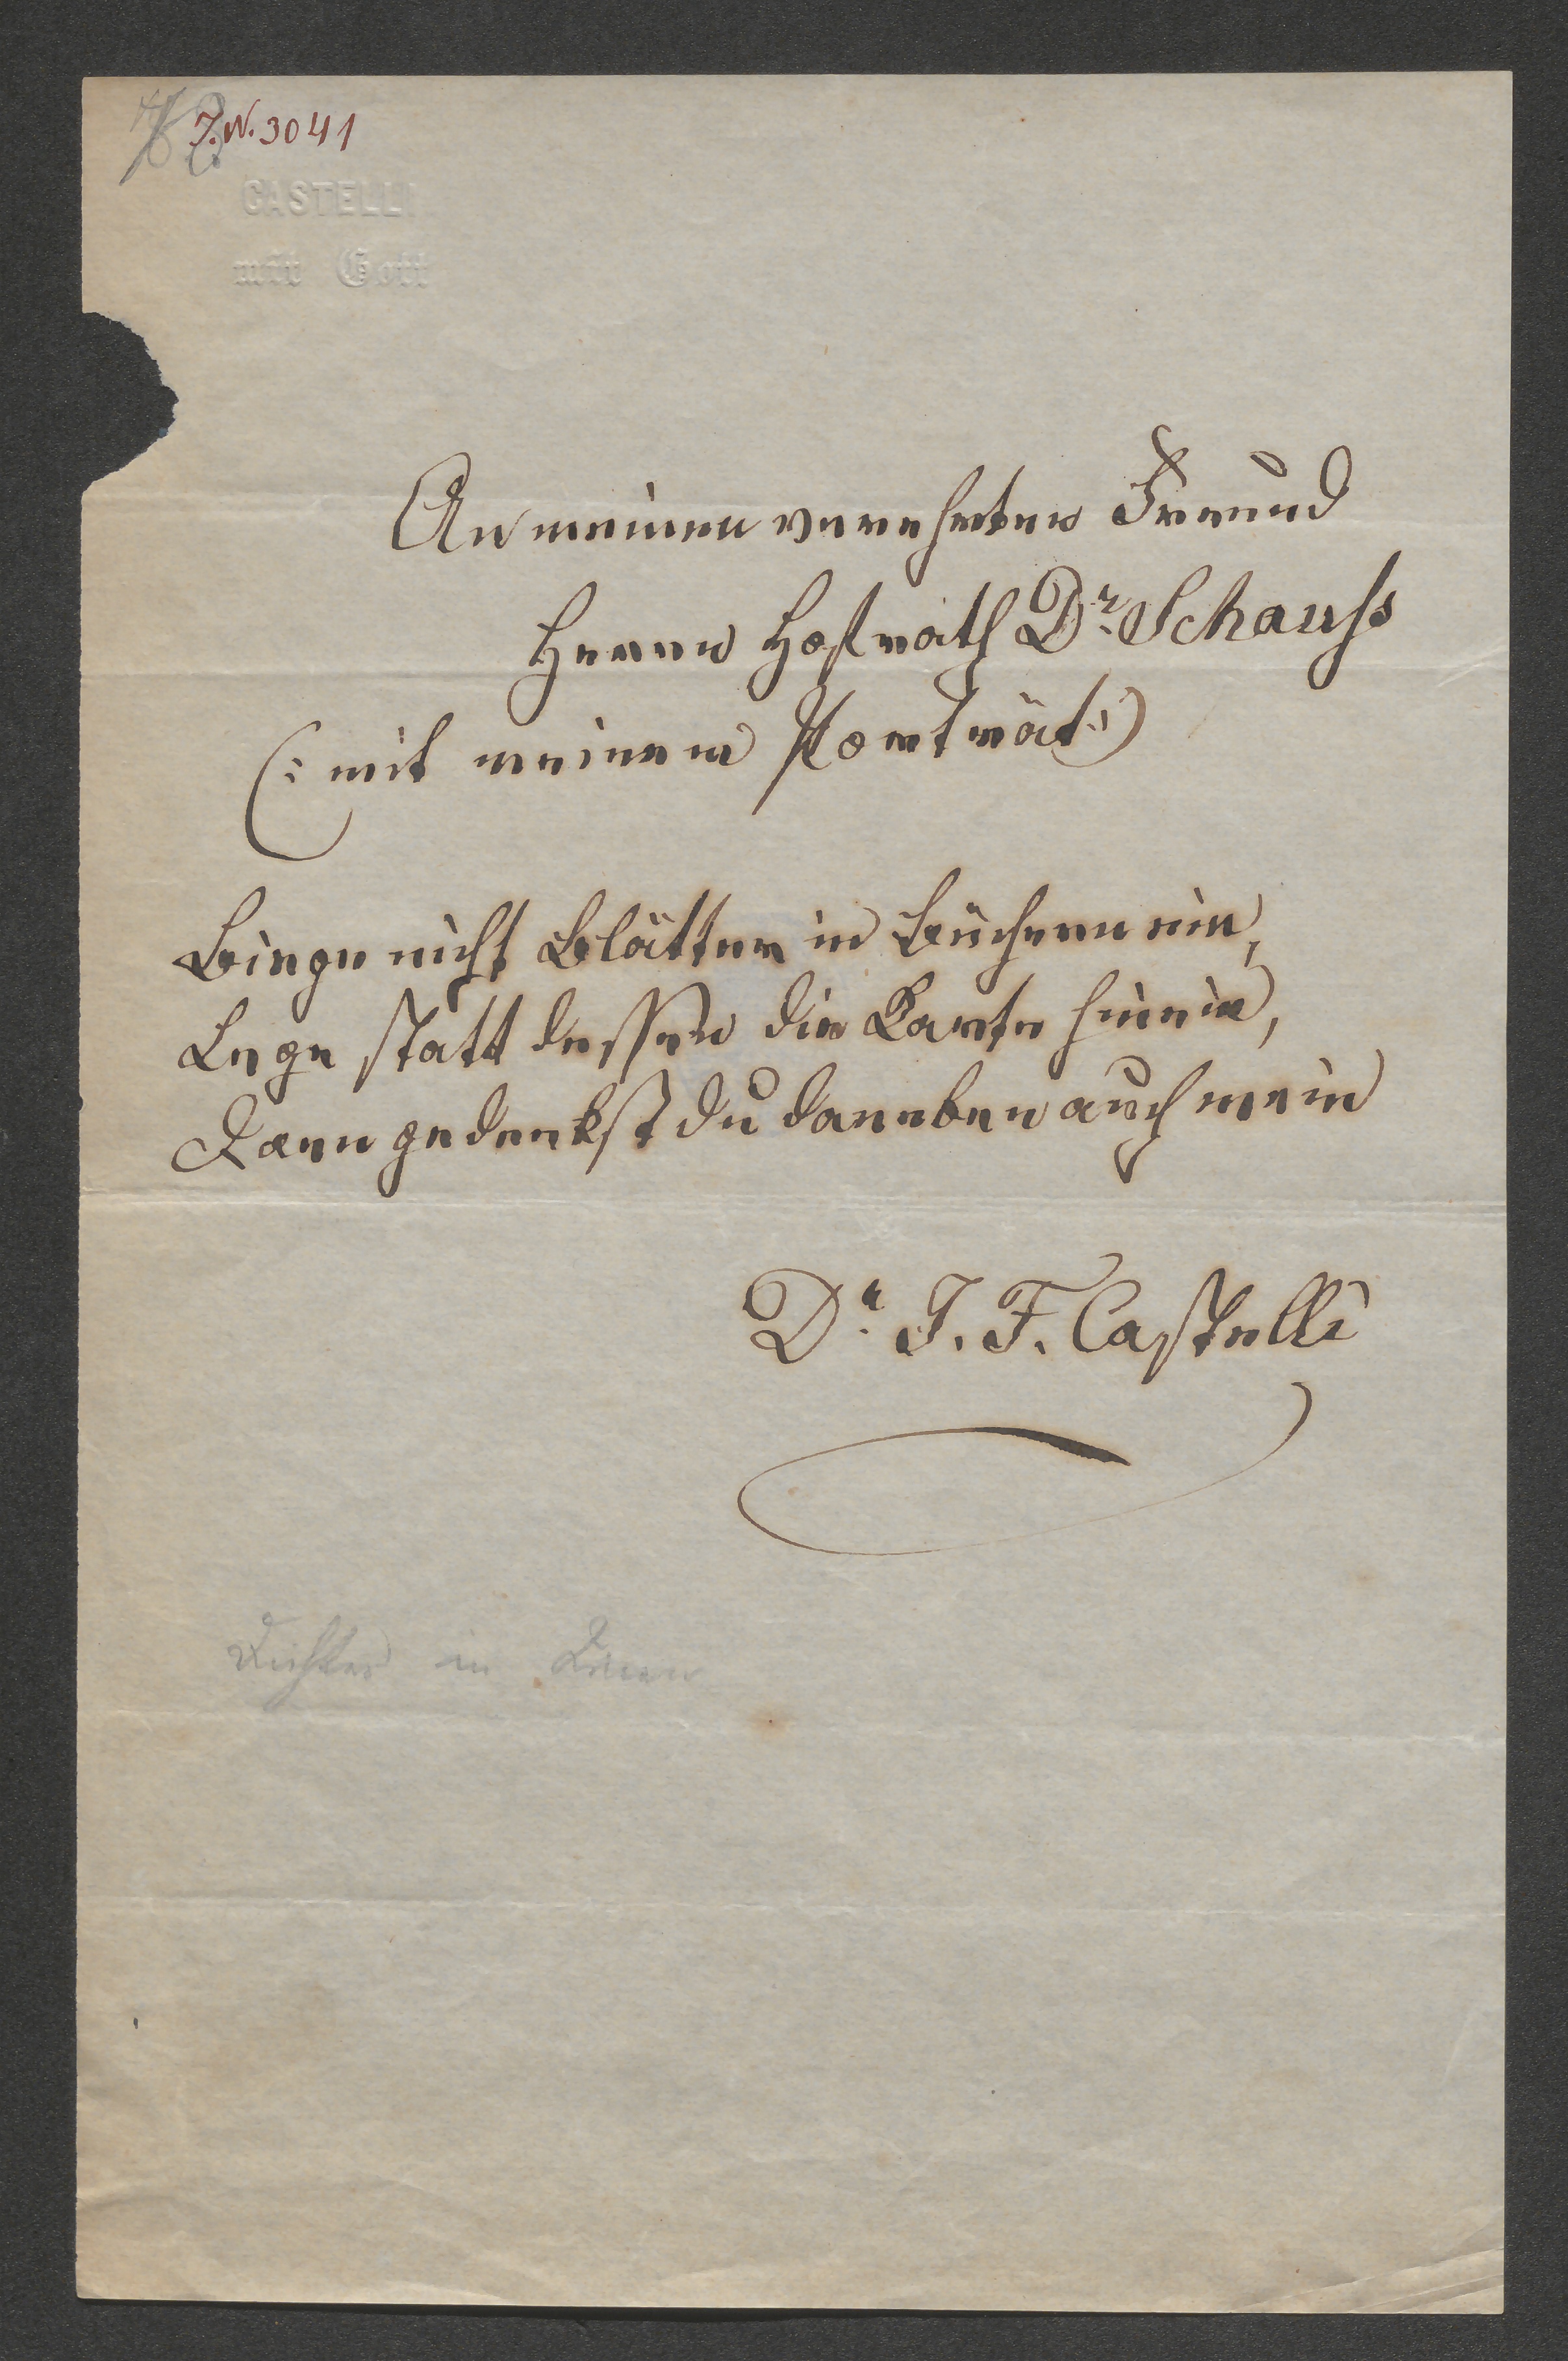 J.N. 3041
CASTELLI
mit Gott
An meinen verehrten Freund
Herrn Hofrath Dr. Schauss
(: mit meinem Porträt :)
Biege nicht Blätter in Büchern ein,
Lege statt dessen die Karte hinein,
Dann gedenkst du daneben auch mein
Dr. J. F. Castelli
Dichter in Wien